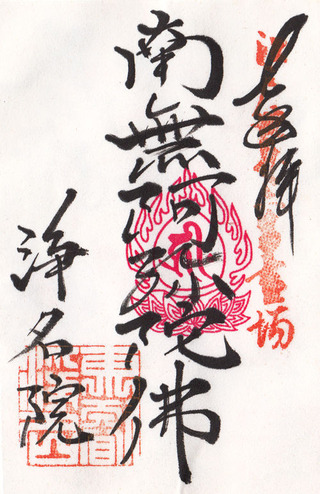 奉拝
南無阿弥陀佛
浄名院